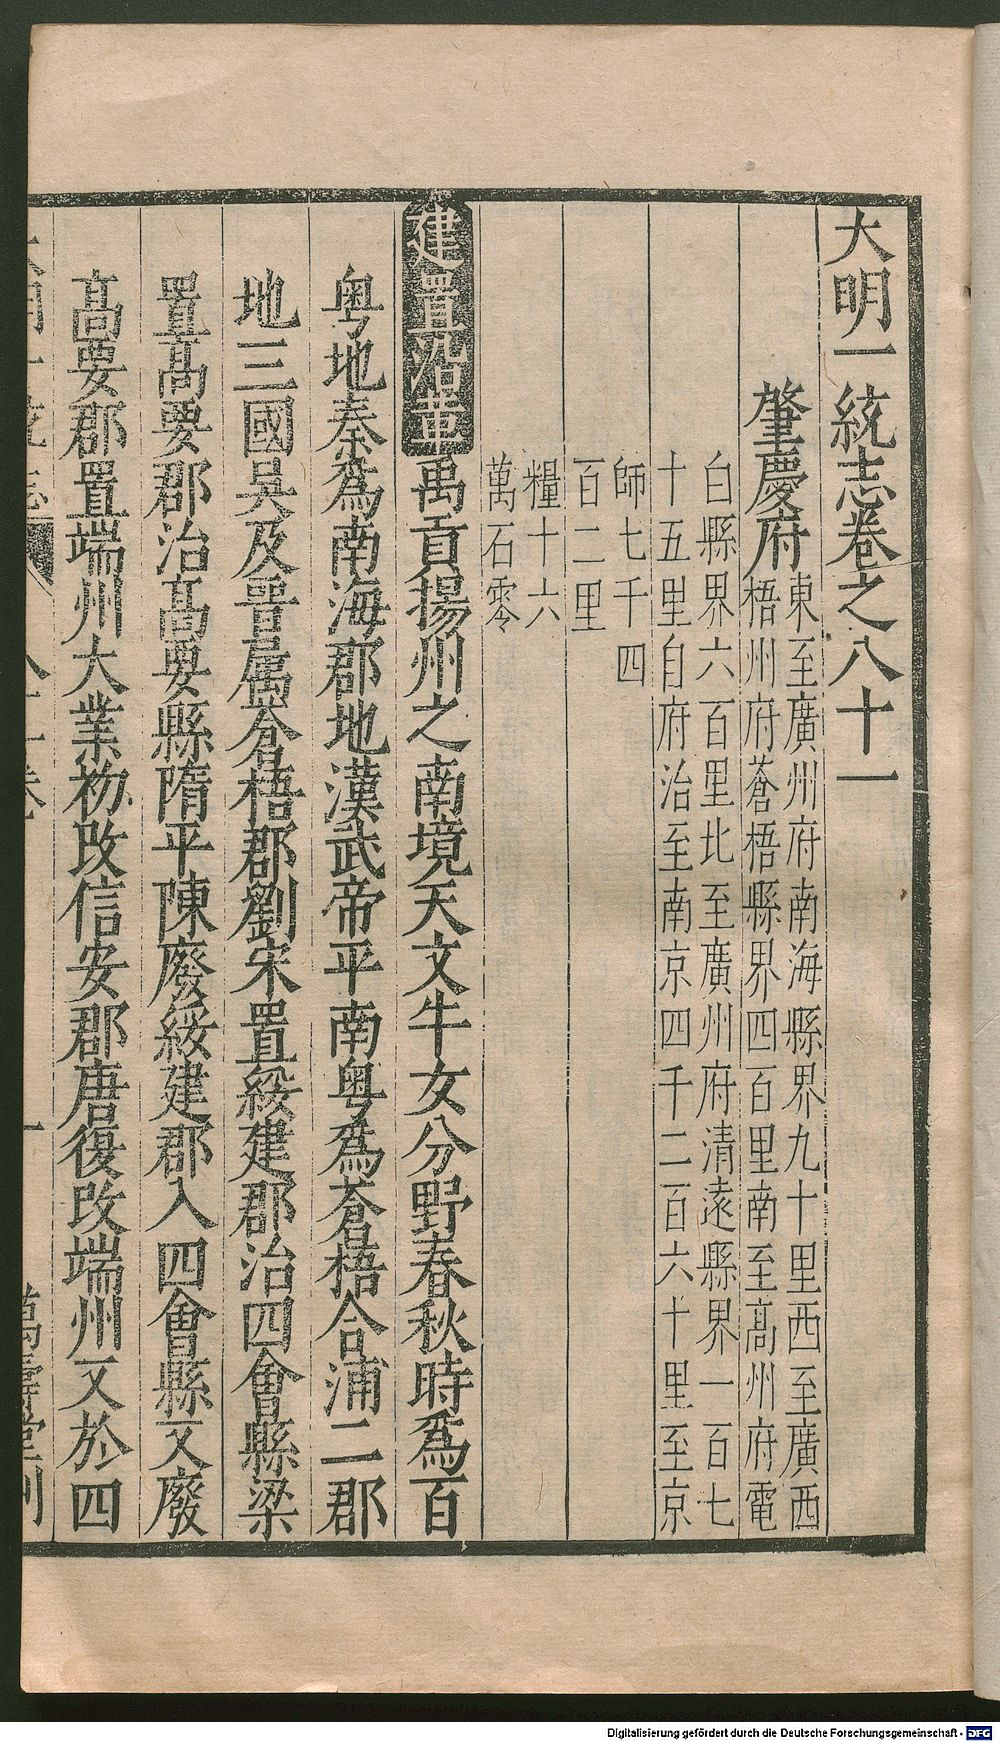 大明一統志卷之八十一
肇慶府
東至廣州府南海縣界九十里西至廣西
梧州府蒼梧縣界四百里南至髙州府電
白縣界六百里北至廣州府清遠縣界一百七
十五里自府治至南京四千二百六十里至京
師七千四
百二里
糧十六
萬石零
建置沿革禹貢揚州之南境天文牛女分野春秋時爲百
粤地秦爲南海郡地漢武帝平南粤爲蒼梧合浦二郡
地三國吳及晉属蒼梧郡劉宋置綏建郡治四會縣梁
置髙要郡治髙要縣隋平陳廢綏建郡入四會縣又廢
髙要郡置端州大業初改信安郡唐復改端州又於四
萬壽堂刊
Digitalisierung gefördert durch die Deutsche Forschungsgemeinschaft - DFG